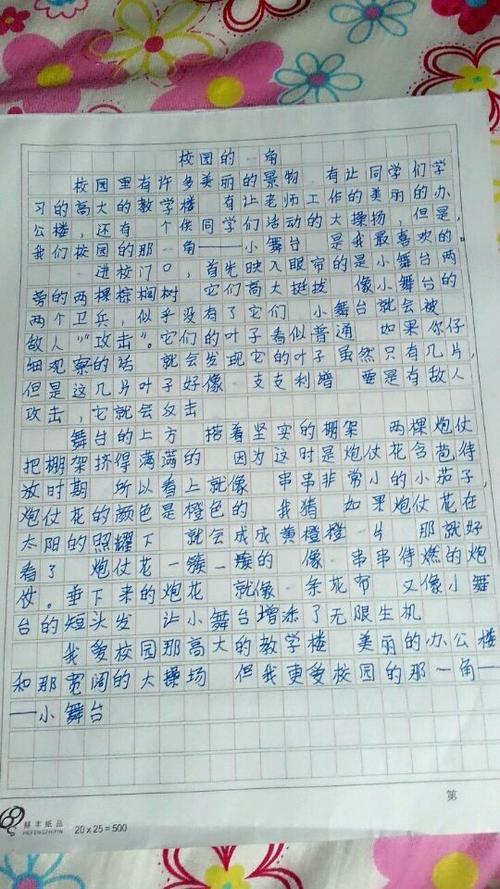 校园的一角
校园里有许多美丽的景物 有让同学们学
习的高大的教学楼 有让老师工作的美丽的办
公楼，还有一个供同学们活动的大操场，但是，
我们校园的那一角——小舞台 是我最喜欢的。
一进校门口，首先映入眼帘的是小舞台两
旁的两棵棕榈树 它们高大挺拔 像小舞台的
两个卫兵，似乎没有了它们 小舞台就会被
敌人"攻击"。它们的叶子看似普通 如果你仔
细观察的话 就会发现它的叶子虽然只有几片，
但是这几片叶子好像一支支利 要是有敌人
攻击，它就会反击
舞台的上方 搭着坚实的棚架 两棵炮仗
把棚架挤得满满的 因为这时是炮仗花含苞待
放时期 所以看上就像一串串非常小的小茄子，
炮仗花的颜色是橙色的 我猜 如果炮仗花在
太阳的照耀下 就会成成黄橙橙一片 那就好
看了 炮仗花一簇一簇的 像一串串待燃的炮
仗。垂下来的炮花 就像一条花布 又像小舞
台的短头发 让小舞台增添了无限生机
我爱校园那高大的教学楼 美丽的办公楼
和那宽阔的大操场 但我更爱校园的那一角—
—小舞台
第
赫丰纸品
HEFENGZHIPIN
20x25=500